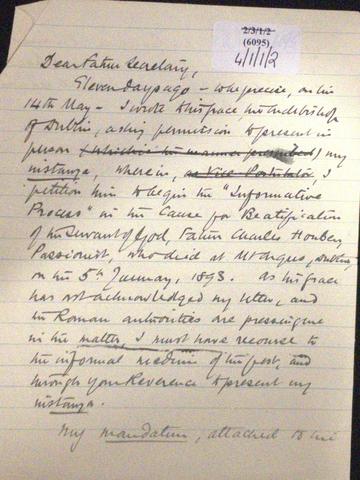 2/3/1/2
(6095)
4/1/1/2
Dear Father Secretary,
Eleven days ago - to be precise, on the
14th May - I wrote to his Grace the Archbishop
of Dublin, asking permission to present in
person (which is the manner prescribed) my
instanza, wherein, as Vice Postulator, I
petition him to begin the "Informative
Process" in the Cause for Beatification
of the Servant of God, Father Charles Houben,
Passionist, who died at Mt Argus, Dublin,
on the 5th January, 1893. As his Grace
has not acknowledged my letter, and
the Roman authorities are pressing me
in the matter, I must have recourse to
the informal medium of the post, and
through your Reverence to present my
instanza.
My mandatum, attached to the